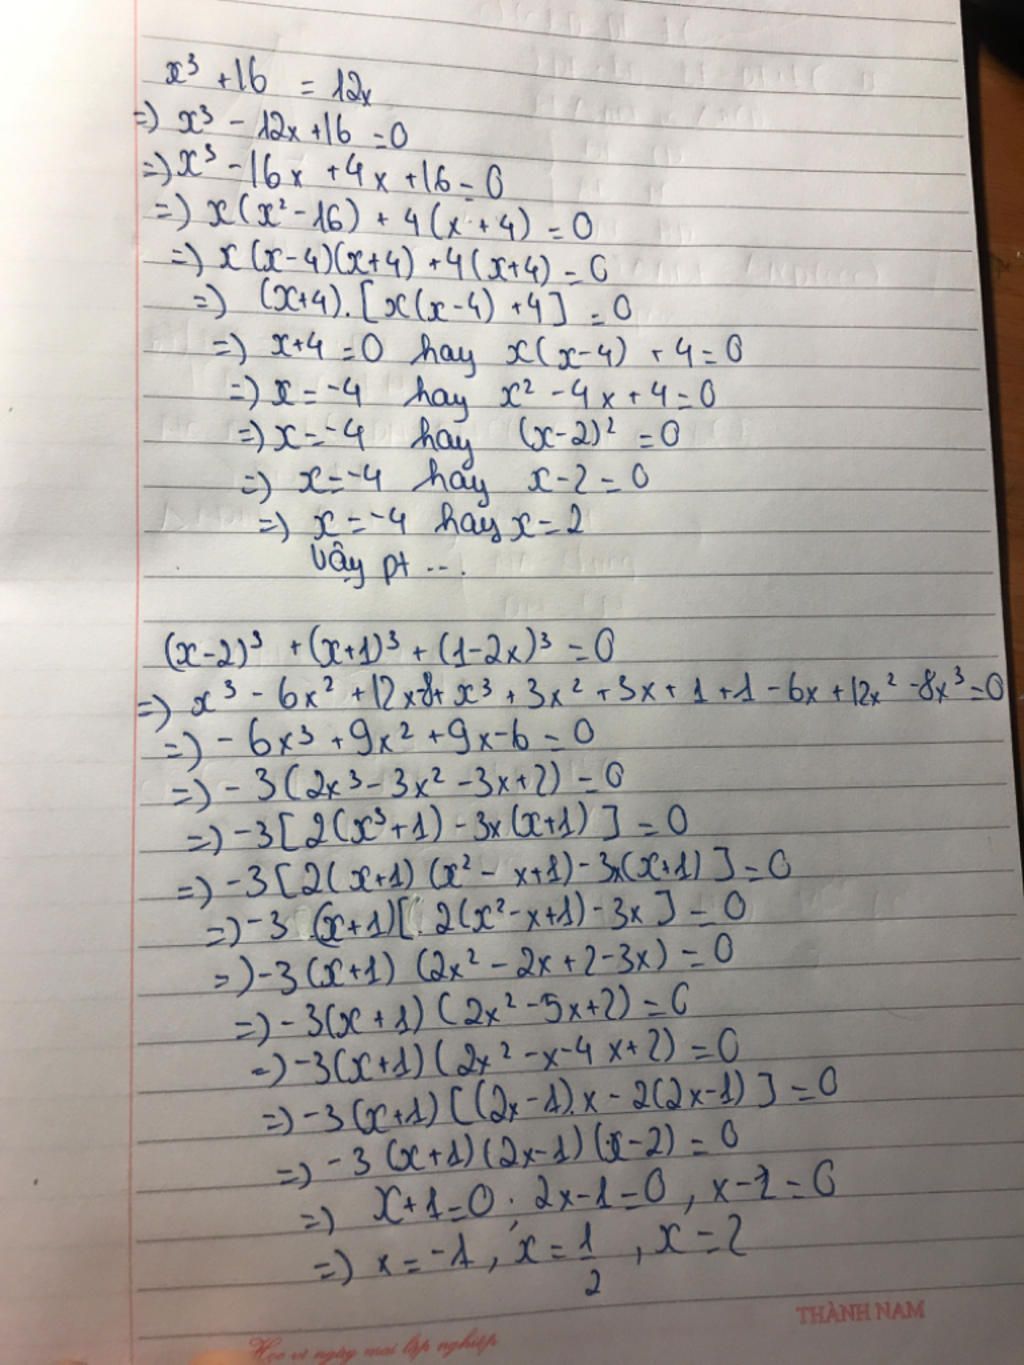 x³ + 16 = 12x
=) x³ - 12x + 16 = 0
=) x³ - 16x + 4x + 16 = 0
=) x(x² - 16) + 4(x + 4) = 0
=) x(x-4)(x+4) + 4(x+4) = 0
=) (x+4).[x(x-4) + 4] = 0
=) x+4 = 0 hay x(x-4) + 4 = 0
=) x = -4 hay x² - 4x + 4 = 0
=) x = -4 hay (x-2)² = 0
=) x = -4 hay x - 2 = 0
=) x = -4 hay x = 2
Vậy pt ...
(x-2)³ + (x+1)³ + (1-2x)³ = 0
=) x³ - 6x² + 12x - 8 + x³ + 3x² + 3x + 1 + 1 - 6x + 12x² - 8x³ = 0
=) - 6x³ + 9x² + 9x - 6 = 0
=) - 3(2x³ - 3x² - 3x + 2) = 0
=) -3[2(x³+1) - 3x(x+1)] = 0
=) -3[2(x+1)(x² - x+1) - 3x(x+1)] = 0
=) -3 (x+1)[2(x²-x+1) - 3x] = 0
=) -3(x+1) (2x² - 2x + 2 - 3x) = 0
=) -3(x+1)(2x² - 5x + 2) = 0
=) -3(x+1)(2x² - x - 4x + 2) = 0
=) -3(x+1)[(2x-1).x - 2(2x-1)] = 0
=) -3(x+1)(2x-1)(x-2) = 0
=) x+1 = 0, 2x-1 = 0, x-2 = 0
=) x = -1, x = 1/2, x = 2
THÀNH NAM
Học vì ngày mai lập nghiệp